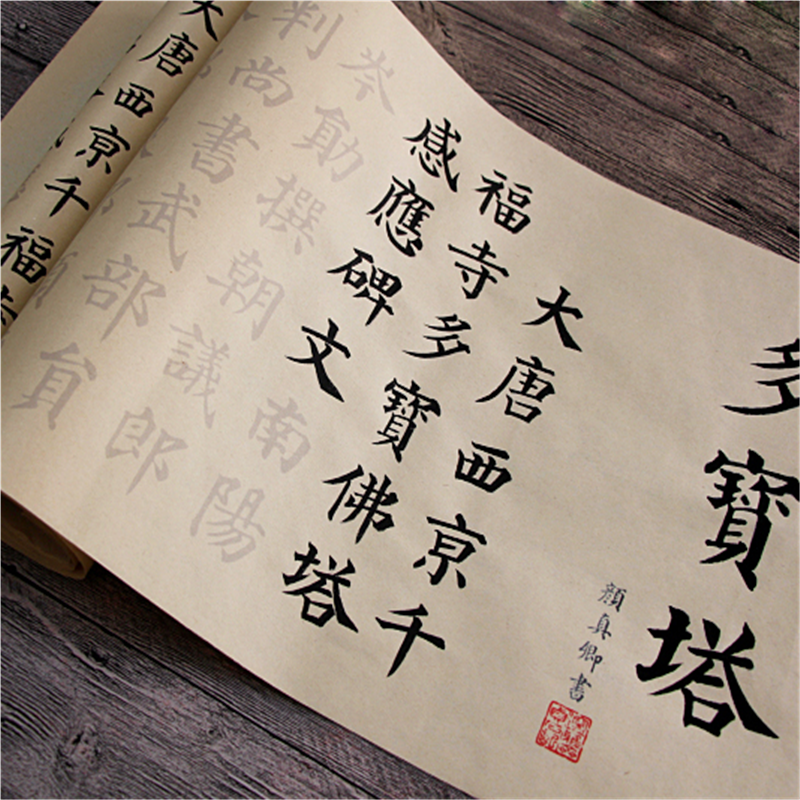 多寶塔
顏真卿書
大唐西京千
福寺多寶佛塔
感應碑文
南陽
岑勛撰朝議郎
判尚書武部員
大唐西京千福